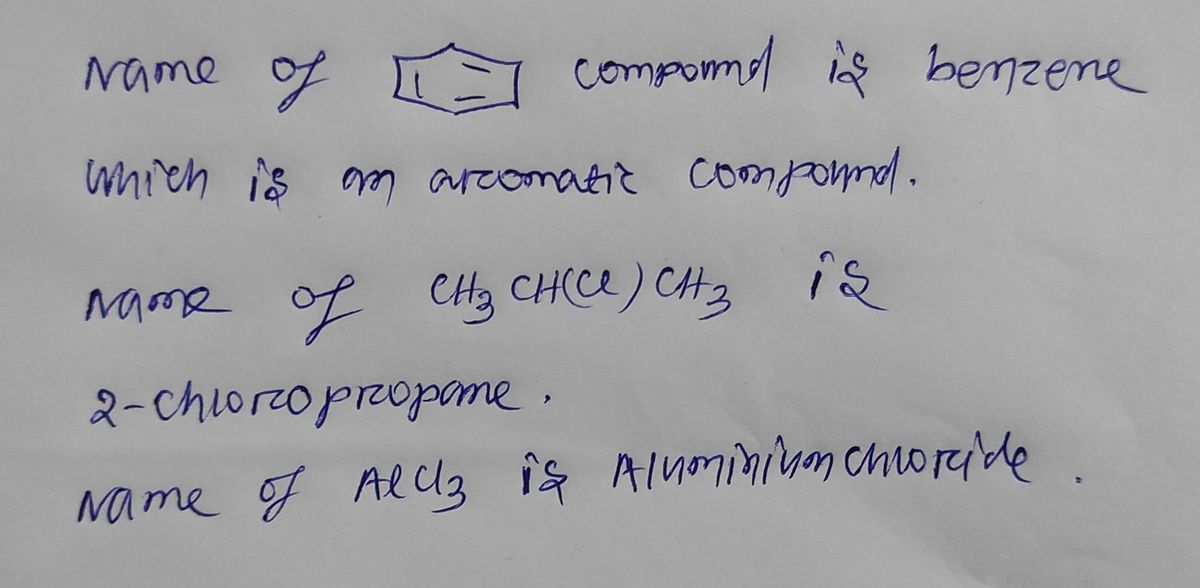 Name of compound is benzene
which is an arcomatic compound.
Name of CH3 CH(Cl) CH3 is
2-chlorcoprcopane.
Name of AlCl3 is Aluminium chlorcide.